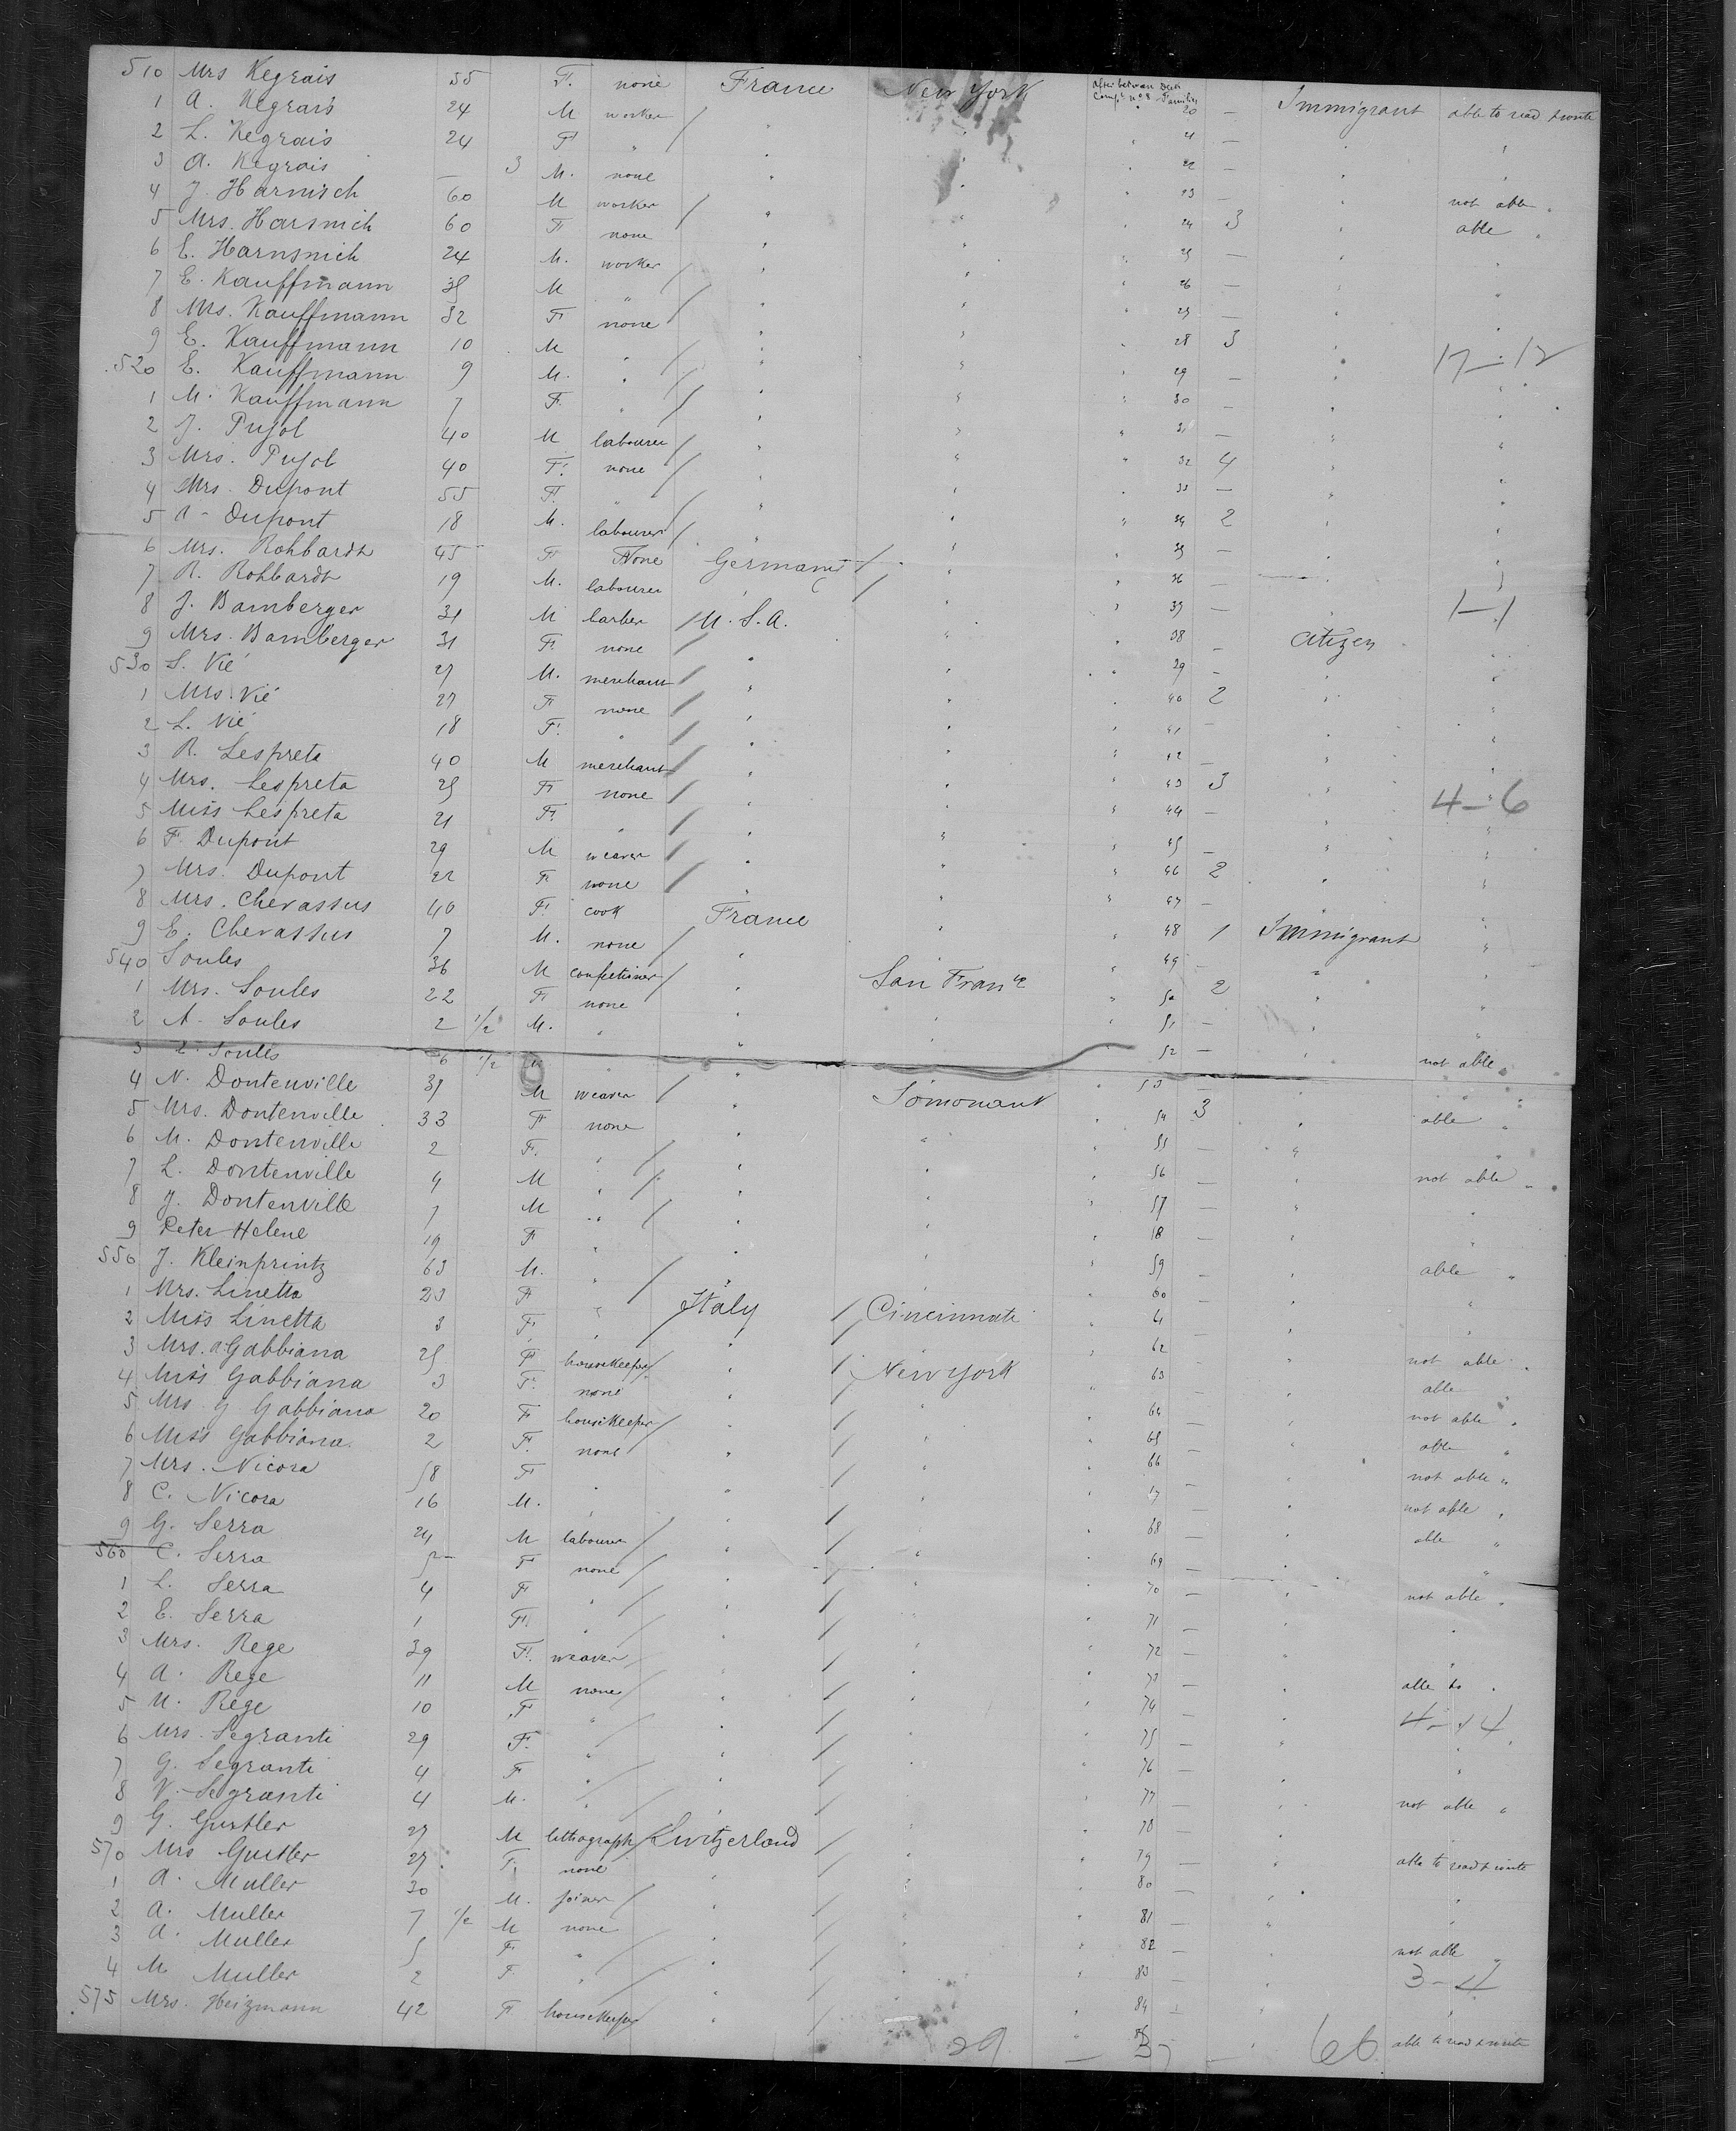 510 Mrs Kegrais 55 F. none France New York after between Deck Comp. no 8 Families 20 — Immigrant able to read & write
1 A. Kegrais 24 M worker / " " " 21 — " "
2 L. Kegrais 24 F " " " " 22 — " "
3 A. Kegrais — 3 M. none " " " 23 — " not able "
4 J. Harnisch 60 M worker / " " " 24 3 " able "
5 Mrs. Harsnich 60 F none " " " 25 — " "
6 E. Harnsnich 24 M. worker / " " " 26 — " "
7 E. Kauffmann 35 M " / " " " 27 — " "
8 Mrs. Kauffmann 32 F none " " " 28 3 " "
9 E. Kauffmann 10 M " / " " " 29 — " 17-12
520 E. Kauffmann 9 M. " / " " " 30 — " "
1 M. Kauffmann 7 F. " / " " " 31 — " "
2 J. Pujol 40 M labourer / " " " 32 4 " "
3 Mrs. Pujol 40 F. none / " " " 33 — " "
4 Mrs. Dupont 55 F. " / " " " 34 2 " "
5 A. Dupont 18 M. labourer / " " " 35 — " "
6 Mrs. Rohbardt 45 F None Germany / " " 36 — " "
7 R. Rohbardt 19 M. labourer " / " " 37 — " 1-1
8 J. Bamberger 31 M barber / U.S.A. " " 38 — Citizen "
9 Mrs. Bamberger 31 F. none / " " " 39 — " "
530 S. Vié 27 M. merchant / " " " 40 2 " "
1 Mrs. Vié 27 F none / " " " 41 — " "
2 L. Vié 18 F. " / " " " 42 — " "
3 R. Lespreta 40 M merchant / " " " 43 3 " "
4 Mrs. Lespreta 25 F none / " " " 44 — " 4-6
5 Miss Lespreta 21 F. " / " " " 45 — " "
6 F. Dupont 29 M weaver / " " " 46 2 " "
7 Mrs. Dupont 22 F none / " " " 47 — " "
8 Mrs. Chevassus 40 F. cook France " " 48 1 Immigrant "
9 E. Chevassus 7 M. none / " " " 49 — " "
540 Soules 36 M confectioner / " San Fran " 50 2 " "
1 Mrs. Soules 22 F none " " " 51 — " "
2 A. Soules 2 1/2 M. " " " 52 — " not able "
3 Soules 6 1/2 " " " 53 — " "
4 N. Dontenville 39 M weaver / " Somonauk " 54 3 " able "
5 Mrs. Dontenville 33 F none " " " 55 — " "
6 M. Dontenville 2 F. " / " " " 56 — " not able "
7 L. Dontenville 4 M " / " " " 57 — " "
8 J. Dontenville 7 M " / " " " 58 — " "
9 Peter Helene 19 F " " " " 59 — " able "
550 J. Kleinprintz 63 M. " / " " " 60 — " "
1 Mrs. Linetta 23 F " / Italy / Cincinnati " 61 — " "
2 Miss Linetta 3 F " " / " 62 — " not able "
3 Mrs. A. Gabbiana 25 F housekeeper / " / New York " 63 — " able "
4 Miss Gabbiana 3 F. none " / " " 64 — " not able "
5 Mrs. G. Gabbiana 20 F housekeeper / " / " " 65 — " able "
6 Miss Gabbiana 2 F. none " / " " 66 — " not able "
7 Mrs. Nicora 58 F " " / " " 67 — " not able "
8 C. Nicora 16 M. " " / " " 68 — " able "
9 G. Serra 24 M labourer / " / " " 69 — " "
560 C. Serra 5 F none / " / " " 70 — " not able "
1 L. Serra 4 F " / " / " " 71 — " "
2 E. Serra 1 F. " / " / " " 72 — " "
3 Mrs. Rege 39 F. weaver / " / " " 73 — " able to "
4 A. Rege 11 M none / " / " " 74 — 4-14
5 M. Rege 10 F " / " / " " 75 — " "
6 Mrs. Segranti 29 F. " / " / " " 76 — " "
7 G. Segranti 4 F " / " / " " 77 — " not able "
8 V. Segranti 4 M. " / " / " " 78 — " "
9 G. Gurtler 27 M lithograph / Switzerland / " " 79 — " able to read & write
570 Mrs Gurtler 27 F. none " / " " 80 — " "
1 A. Muller 30 M. joiner / " / " " 81 — " "
2 A. Muller 7 1/2 M none / " / " " 82 — " not able "
3 A. Muller 5 F " / " / " " 83 — " 3-4
4 M Muller 2 F. " / " / " " 84 — " "
575 Mrs. Heizmann 42 F housekeeper " / " " — " able to read & write
29 — 37 — 66